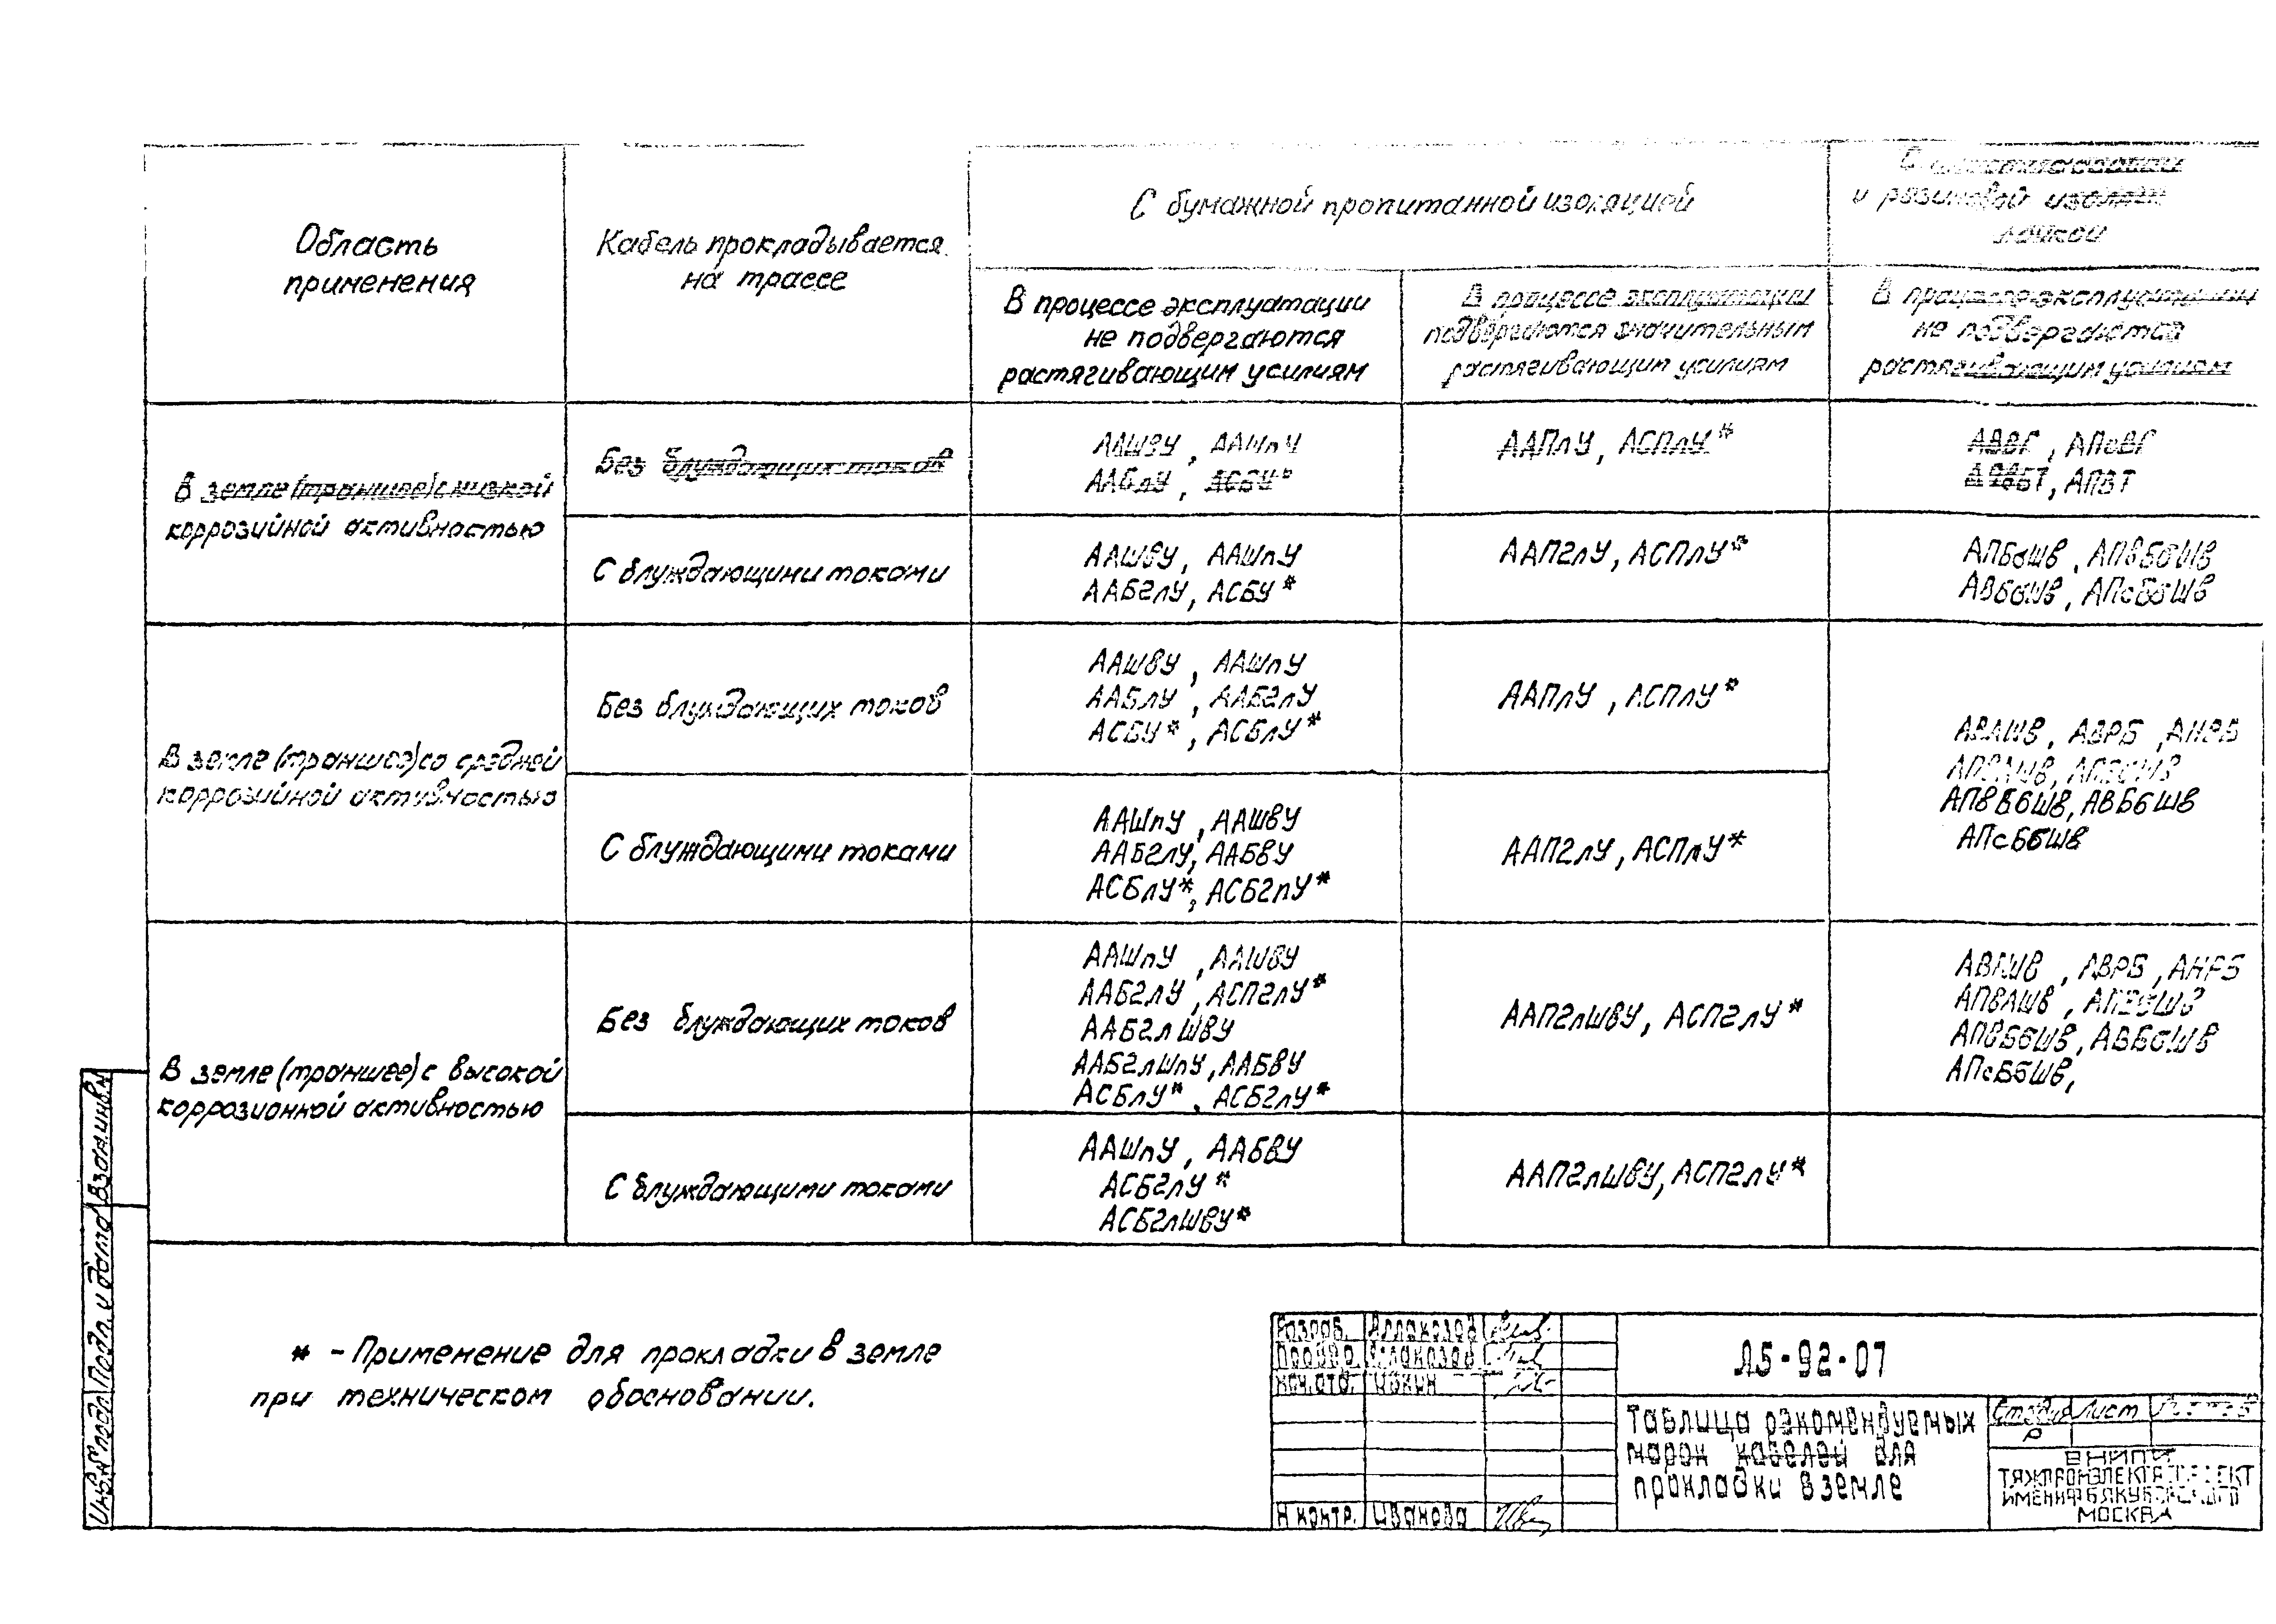 Область
применения
Кабель прокладывается
на трассе
С бумажной пропитанной изоляцией
С пластмассовой
и резиновой изоляцией
В процессе эксплуатации
не подвергаются
растягивающим усилиям
В процессе эксплуатации
подвергаются значительным
растягивающим усилиям
В процессе эксплуатации
не подвергаются
растягивающим усилиям
В земле (траншее) с низкой
коррозийной активностью
Без блуждающих токов
ААШвУ, ААШпУ
ААБлУ, АСБУ*
ААПлУ, АСПлУ*
АВВГ, АПсВГ
АПВГ
С блуждающими токами
ААШвУ, ААШпУ
ААБ2лУ, АСБУ*
ААП2лУ, АСПлУ*
АПБбШв, АПвБбШв
АВБбШв, АПсБбШв
В земле (траншее) со средней
коррозийной активностью
Без блуждающих токов
ААШвУ, ААШпУ
ААБлУ, ААБ2лУ
АСБУ*, АСБлУ*
ААПлУ, АСПлУ*
АВАШв, АВРБ, АНРБ
АПВАШв, АПБбШв
АПвБбШв, АВБбШв
АПсБбШв
С блуждающими токами
ААШпУ, ААШвУ
ААБ2лУ, ААБвУ
АСБлУ*, АСБ2лУ*
ААП2лУ, АСПлУ*
В земле (траншее) с высокой
коррозионной активностью
Без блуждающих токов
ААШпУ, ААШвУ
ААБ2лУ, АСП2лУ*
ААБ2лШвУ
ААБ2лШпУ, ААБвУ
АСБлУ*, АСБ2лУ*
ААП2лШвУ, АСП2лУ*
АВАШв, АВРБ, АНРБ
АПвАШв, АПБбШв
АПвБбШв, АВБбШв
АПсБбШв,
С блуждающими токами
ААШпУ, ААБвУ
АСБ2лУ*
АСБ2лШвУ*
ААП2лШвУ, АСП2лУ*
* - Применение для прокладки в земле
при техническом обосновании.
Разраб.
Провер.
Нач.отд. Ивкин
Н контр. Иванова
А5-92-07
Таблица рекомендуемых
марок кабелей для
прокладки в земле
Стадия Лист Листов
Р
ВНИПИ
ТЯЖПРОМЭЛЕКТРОПРОЕКТ
ИМЕНИ Ф.Б.ЯКУБОВСКОГО
МОСКВА
Инв.№ подл. Подп. и дата Взам.инв.№